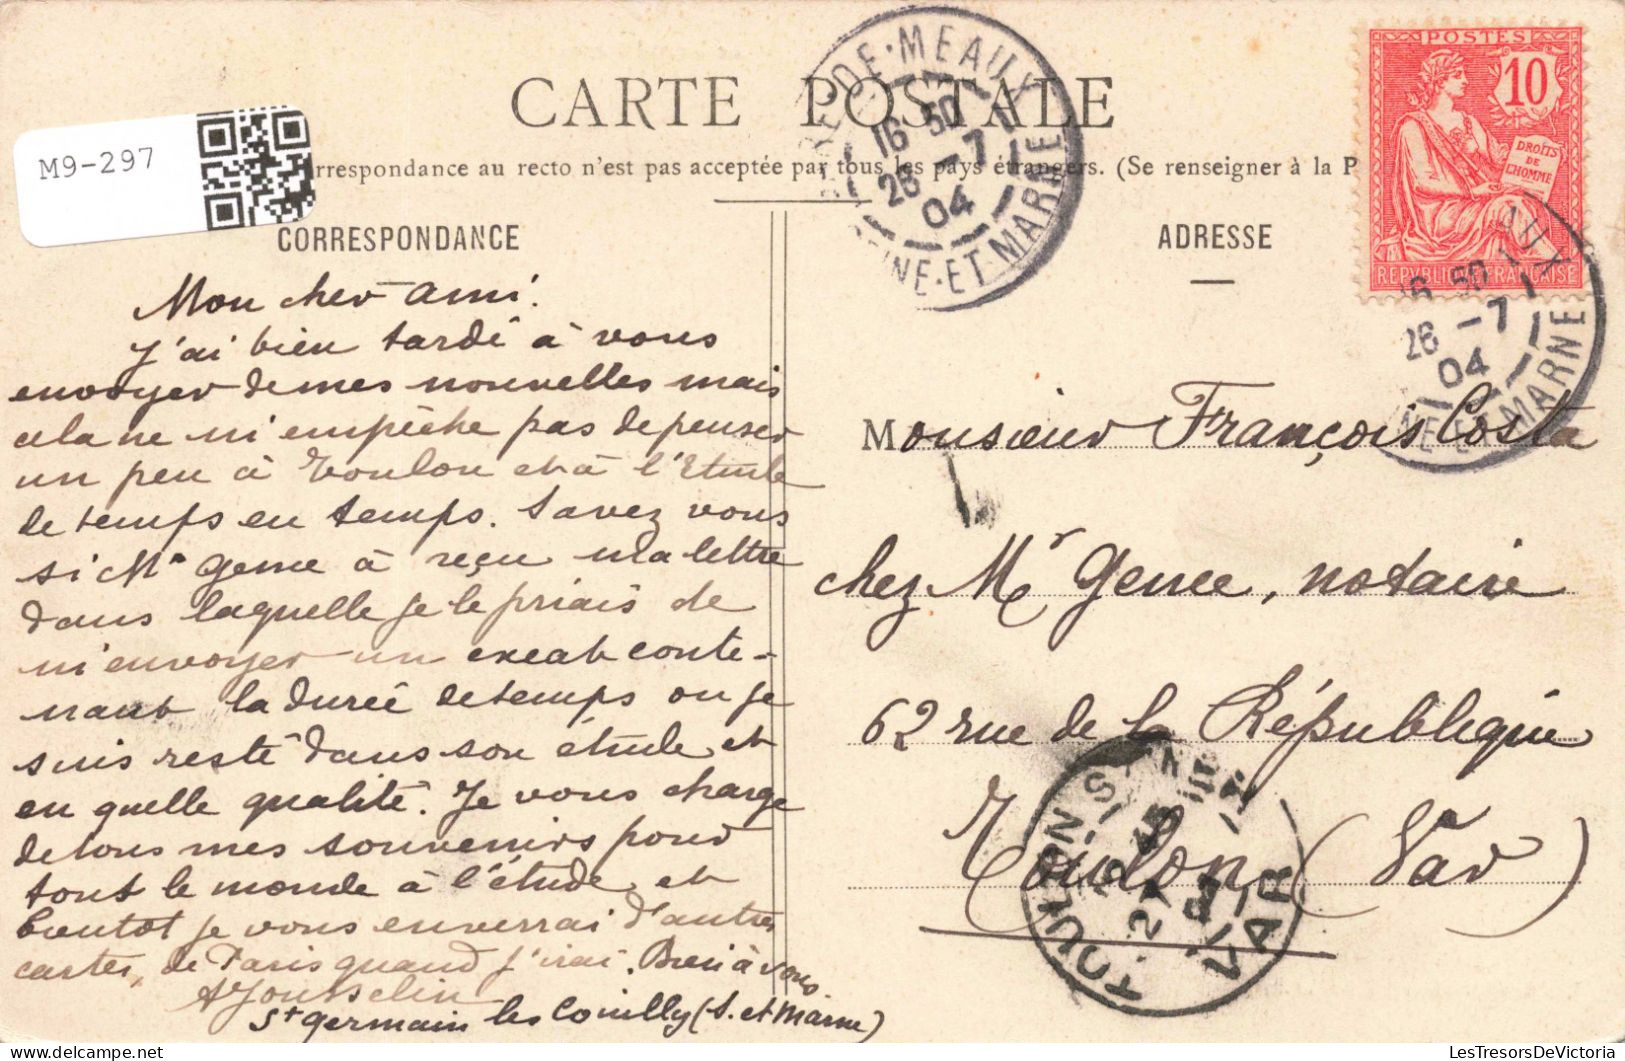 CARTE POSTALE
M9-297
rrespondance au recto n'est pas acceptée par tous les pays étrangers. (Se renseigner à la P
CORRESPONDANCE
Mon cher ami.
J'ai bien tardé à vous
envoyer de mes nouvelles mais
cela ne m'empêche pas de penser
un peu à Toulon et à l'Etude
de temps en temps. Savez vous
si Me Gence à reçu ma lettre
dans laquelle je le priais de
m'envoyer un exeat conte-
nant la durée de temps ou je
suis resté dans son étude et
en quelle qualité. Je vous charge
de tous mes souvenirs pour
tout le monde à l'étude et
bientot je vous enverrai d'autres
cartes, de Paris quand j'irai. Bien à vous
A Jousselin
St Germain les Couilly (S. et Marne)
ADRESSE
Monsieur François Costa
chez Me Gence, notaire
62 rue de la République
Toulon (Var)
POSTES
10
DROITS DE L'HOMME
REPUBLIQUE FRANÇAISE
DE MEAUX
16 50
26 -7
04
SEINE-ET-MARNE
16 50
26 -7
04
ET-MARNE
TOULON S
27
VAR
LesTresorsDeVictoria.com